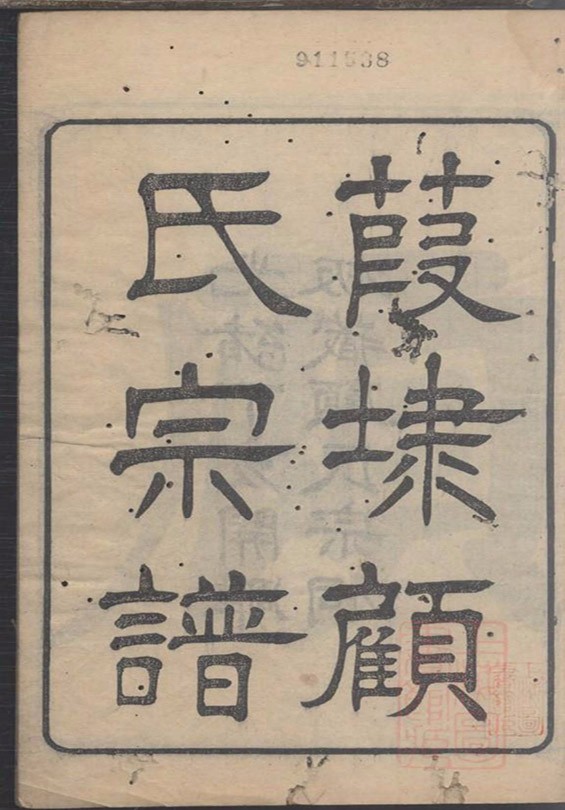 911538
葭埭顧
氏宗譜